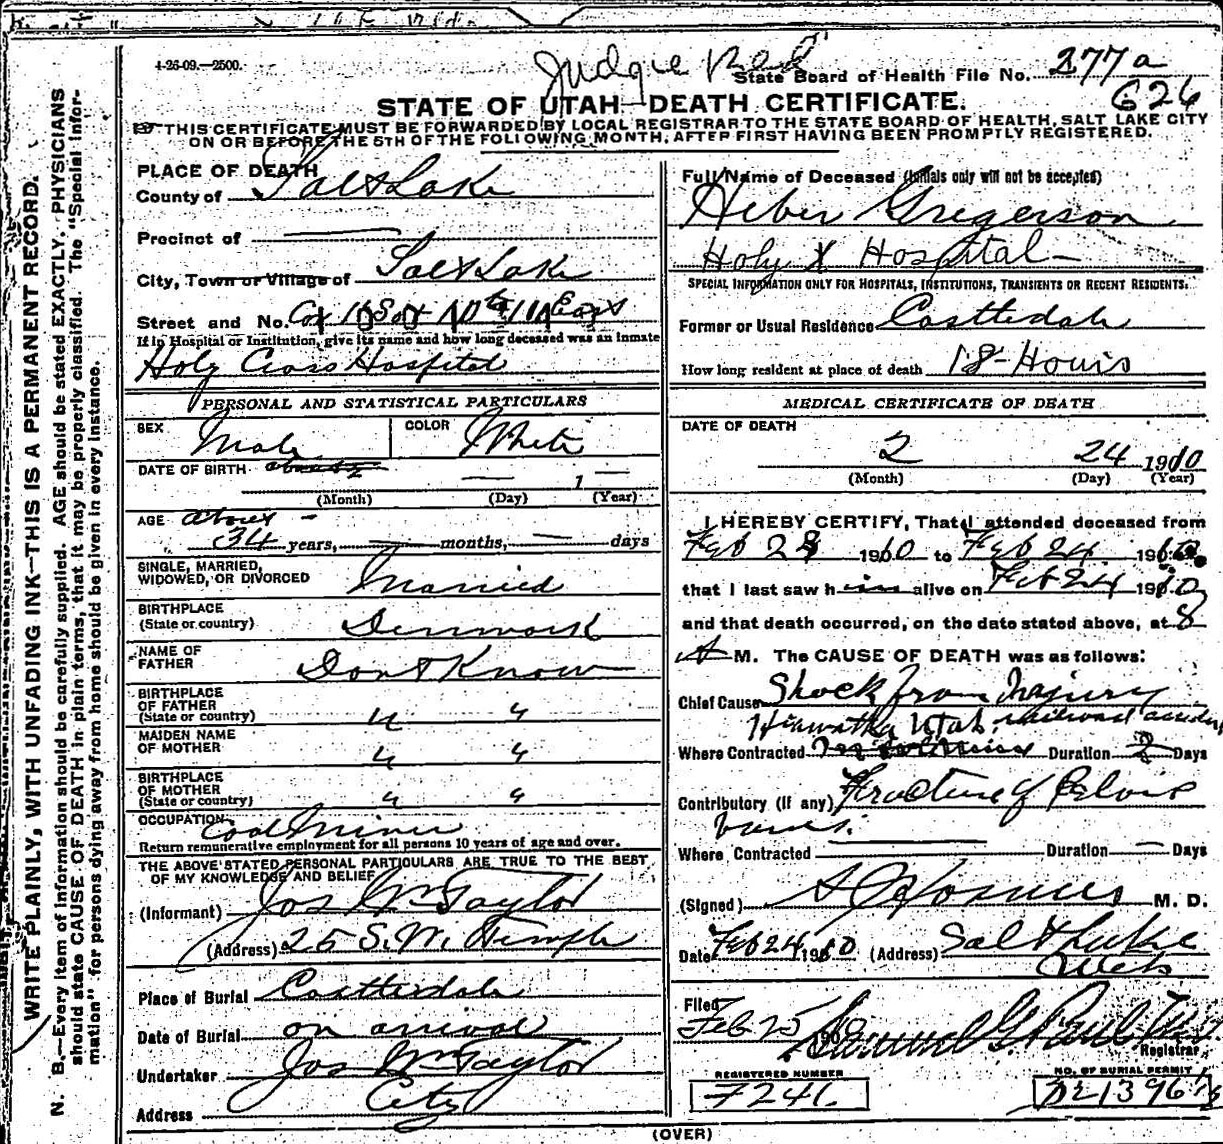 4-26-09.—2500.
Judgie
State Board of Health File No. 277 a
626
STATE OF UTAH—DEATH CERTIFICATE.
THIS CERTIFICATE MUST BE FORWARDED BY LOCAL REGISTRAR TO THE STATE BOARD OF HEALTH, SALT LAKE CITY
ON OR BEFORE THE 5TH OF THE FOLLOWING MONTH, AFTER FIRST HAVING BEEN PROMPTLY REGISTERED.
WRITE PLAINLY, WITH UNFADING INK—THIS IS A PERMANENT RECORD.
N. B.—Every item of information should be carefully supplied. AGE should be stated EXACTLY. PHYSICIANS
should state CAUSE OF DEATH in plain terms, that it may be properly classified. The "Special Infor-
mation" for persons dying away from home should be given in every instance.
PLACE OF DEATH
County of Salt Lake
Precinct of —
City, Town or Village of Salt Lake
Street and No. Cor 1 So & 10th East
If in Hospital or Institution, give its name and how long deceased was an inmate
Holy Cross Hospital
PERSONAL AND STATISTICAL PARTICULARS
SEX Male COLOR White
DATE OF BIRTH — 1 —
(Month) (Day) (Year)
AGE about
34 years, — months, — days
SINGLE, MARRIED,
WIDOWED, OR DIVORCED Married
BIRTHPLACE
(State or country) Denmark
NAME OF
FATHER Dont Know
BIRTHPLACE
OF FATHER
(State or country) " "
MAIDEN NAME
OF MOTHER " "
BIRTHPLACE
OF MOTHER
(State or country) " "
OCCUPATION Coal Miner
Return remunerative employment for all persons 10 years of age and over.
THE ABOVE STATED PERSONAL PARTICULARS ARE TRUE TO THE BEST
OF MY KNOWLEDGE AND BELIEF
(Informant) Jos Wm Taylor
(Address) 25 S. W. Temple
Place of Burial Castledale
Date of Burial on arrival
Undertaker Jos Wm Taylor
Address City
Full Name of Deceased (Initials only will not be accepted)
Heber Gregerson
Holy X Hospital
SPECIAL INFORMATION ONLY FOR HOSPITALS, INSTITUTIONS, TRANSIENTS OR RECENT RESIDENTS.
Former or Usual Residence Castledale
How long resident at place of death 18 Hours
MEDICAL CERTIFICATE OF DEATH
DATE OF DEATH
2 24 1910
(Month) (Day) (Year)
I HEREBY CERTIFY, That I attended deceased from
Feb 23 1910 to Feb 24 1910
that I last saw him alive on Feb 24 1910
and that death occurred, on the date stated above, at 8
A M. The CAUSE OF DEATH was as follows:
Chief Cause Shock from Injury
Hiawatha Utah. railroad accident
Where Contracted Duration 2 Days
Contributory (if any) Fracture of Pelvis
bones.
Where Contracted — Duration — Days
(Signed) M. D.
Date Feb 24, 1910 (Address) Salt Lake
Filed
Feb 25 190 Samuel G. Paul
Registrar
REGISTERED NUMBER
7241.
NO. OF BURIAL PERMIT
(OVER)